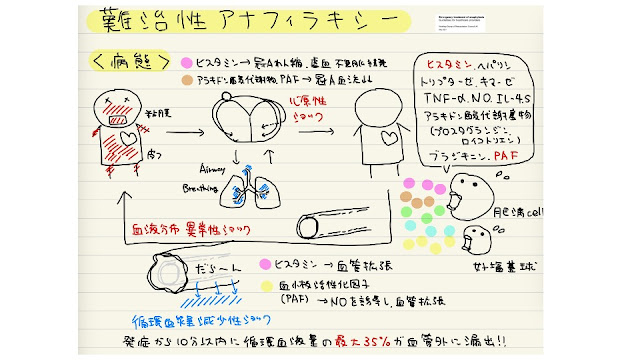 難治性アナフィラキシー
<病態>
ヒスタミン→冠A攣縮、虚血、不整脈に繋発
アラキドン酸代謝物、PAF→冠A血流↓↓
粘膜
皮フ
心原性
ショック
Airway
Breathing
ヒスタミン、ヘパリン
トリプターゼ、キマーゼ
TNF-α、NO、IL-4,5
アラキドン酸代謝産物
(プロスタグランジン、
ロイコトリエン)
ブラジキニン、PAF
肥満cell
好塩基球
血液分布異常性ショック
だら〜ん
ヒスタミン→血管拡張
血小板活性化因子
(PAF)→NOを誘導し、血管拡張
循環血液量減少性ショック
発症から10分以内に循環血液量の最大35%が血管外に漏出!!